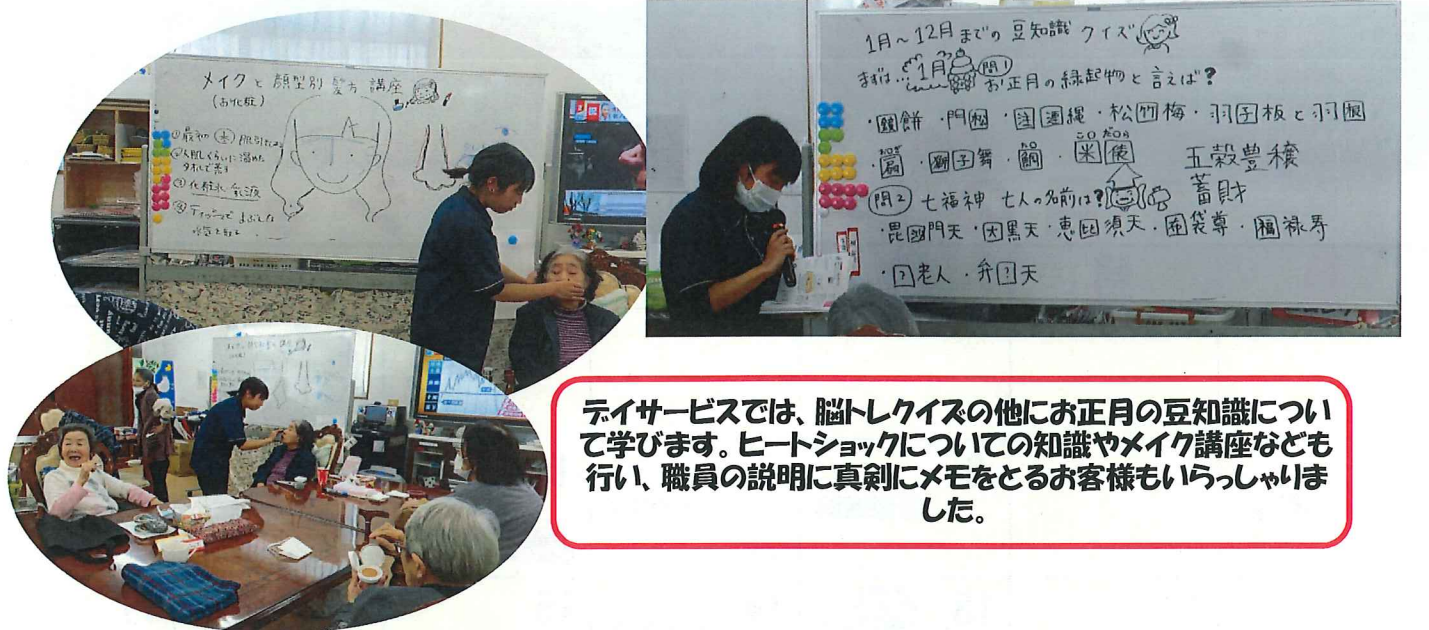 メイクと顔型別 髪方 講座
(お化粧)
タオルで蒸す
③化粧水 乳液
1月〜12月までの 豆知識 クイズ
まずは… 1月 問1
お正月の縁起物と言えば?
・鏡餅・門松・注連縄・松竹梅・羽子板と羽根
・扇・獅子舞・鯛・米俵 五穀豊穣
蓄財
問2 七福神 七人の名前は?
・毘沙門天・大黒天・恵比須天・布袋尊・福禄寿
・?老人・弁?天
デイサービスでは、脳トレクイズの他にお正月の豆知識につい
て学びます。ヒートショックについての知識やメイク講座なども
行い、職員の説明に真剣にメモをとるお客様もいらっしゃりま
した。